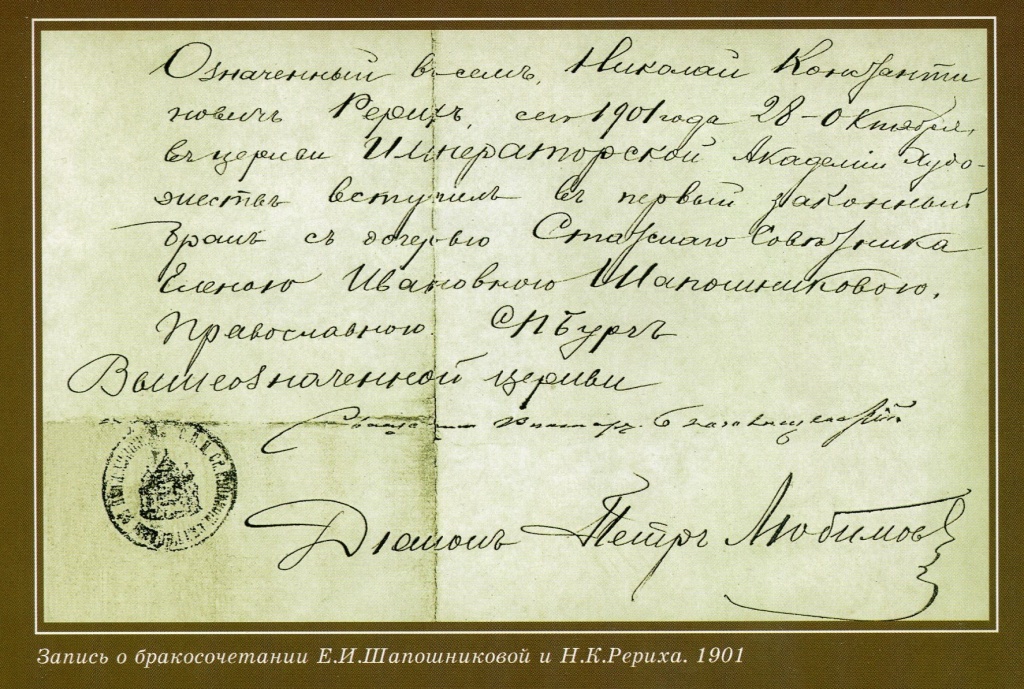 Означенный в семъ, Николай Константи
новичъ Рерихъ, сего 1901 года 28-Октября,
въ церкви Императорской Академіи Худо-
жествъ вступилъ въ первый законный
бракъ съ дочерью Статскаго Совѣтника
Еленою Ивановною Шапошниковою,
Православною. СПБургъ
Вышеозначенной церкви
Священникъ Викторъ Благовещенскій
Діаконъ Петръ Любимовъ
Запись о бракосочетании Е.И.Шапошниковой и Н.К.Рериха. 1901